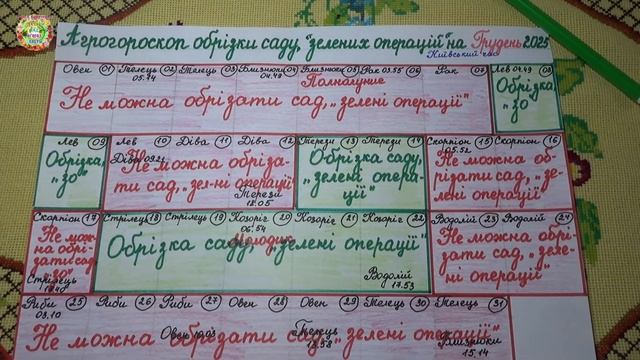 Агрогороскоп обрізки саду, "зелених операцій" на Грудень 2025
Київський час
Овен 01 Телець 02 Телець 03 Близнюки 04 Близнюки 05 Рак 03.55 06 Рак 07 Лев 04.49 08
05.14 04.48 Полнолуние
Не можна обрізати сад, "зелені операції"
Обрізка, "зо"
Лев 09 Лев 10 Діва 11 Діва 12 Терези 13 Терези 14 Скорпіон 15 Скорпіон 16
Діва 09.21 05.52
Обрізка, "зо"
Не можна обріза-
ти сад, "зел-ні операції"
Терези
18.05
Обрізка саду,
"зелені опера-
ції"
Не можна об-
різати сад, "зе-
лені операції"
Скорпіон 17 Стрілець 18 Стрілець 19 Козоріг 20 Козоріг 21 Козоріг 22 Водолій 23 Водолій 24
06.54
Не мож-
на обрі-
зати сад
"зо"
Стрілець
Обрізка саду, "зелені операції"
Молодик
Водолій
17.53
Не можна обрі-
зати сад, "зеле-
ні операції"
Риби 25 Риби 26 Риби 27 Овен 28 Овен 29 Телець 30 Телець 31
03.10
Не можна обрезати сад, "зелені операції"
Овен
Телець
18.58
Близнюки
15.14